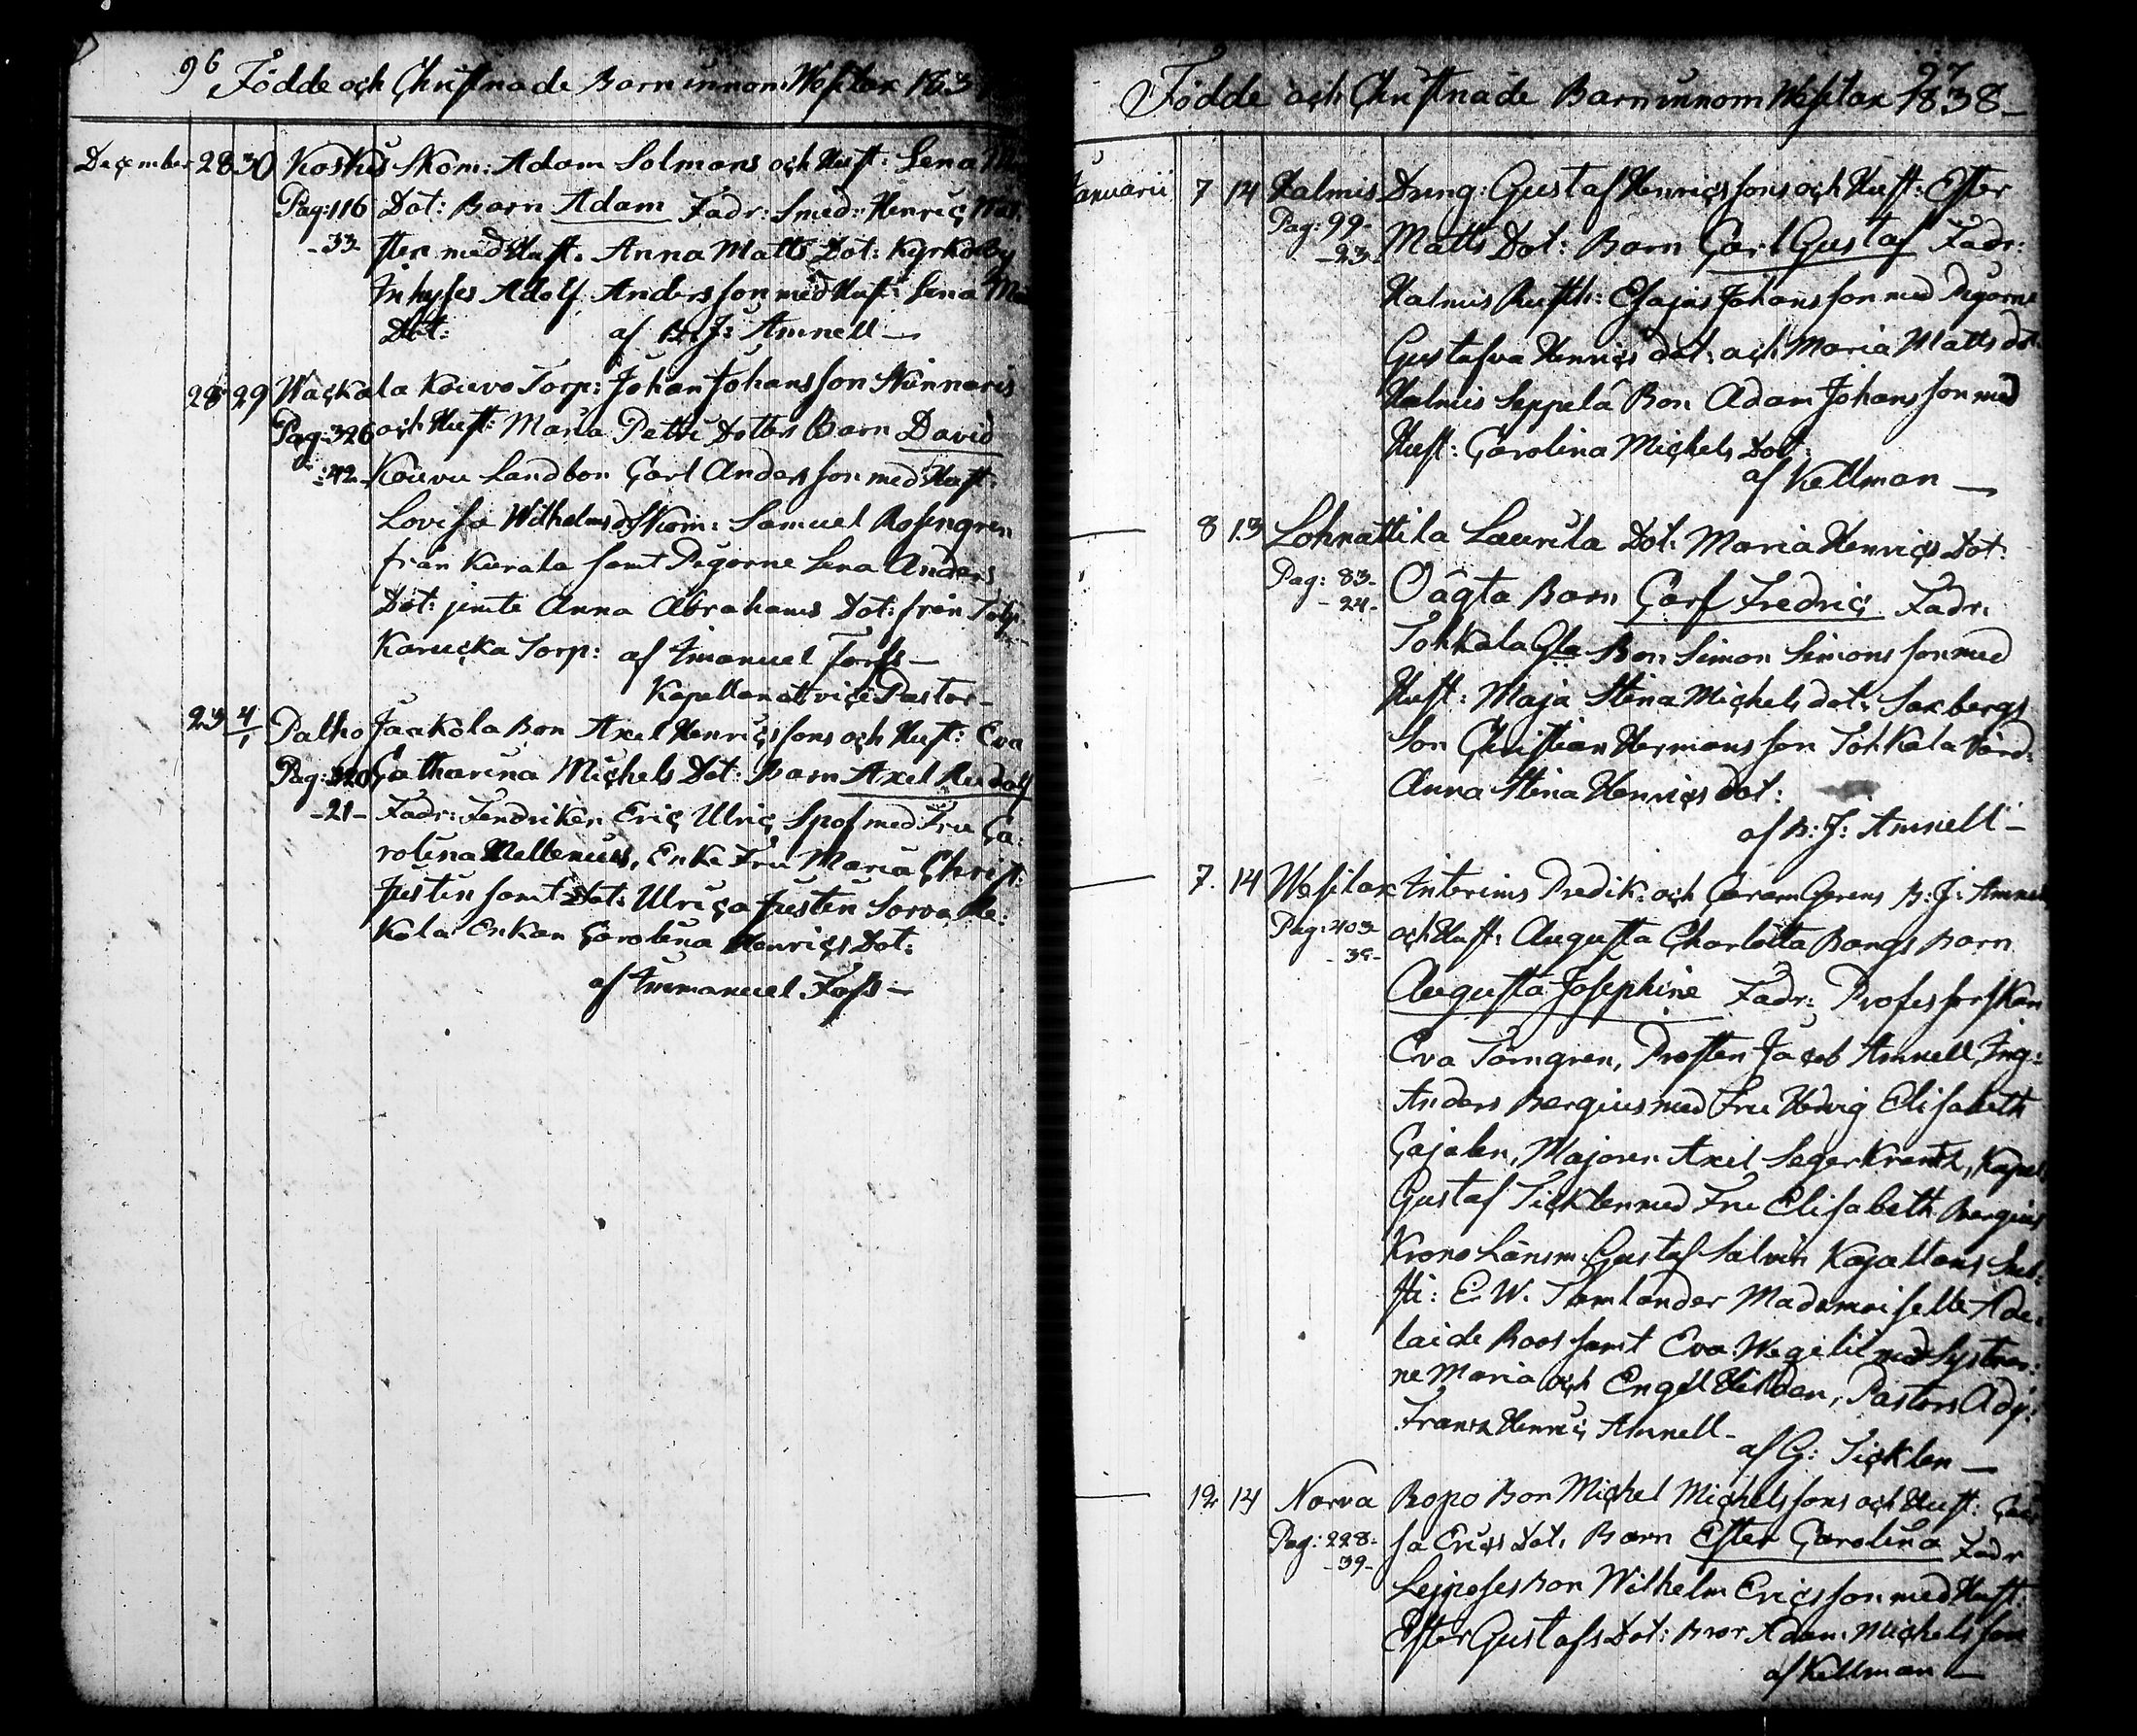 96 Födde och Christnade Barn innom Wesilax 183
December 28 30 Koskis Skom: Adam Solmans och Hust: Lena
Pag: 116 Dot: Barn Adam Fadr: Smed: Henric
-33- ster med Hust. Anna Matts Dot: Kyrkoby
Inhyses Adolf Andersson med Hust: Lena
Dot: af B: J: Amnell —
28 29 Wackala Kouvo Torp: Johan Johansson
Pag: 326 och Hust: Maria Petri Dotters Barn David
-42- Kouvu Landbon Carl Andersson med Hust.
Lovisa Wilhelms d. Skom: Samuel Rosengren
från Kurala samt Pigorne Lena Anders
Dot: jemte Anna Abrahams Dot: från
Karucka Torp: af Imanuel Forss —
Kapellan att vice Pastor —
23 4/1 Palho Jaakola Bon Axel Henricssons och Hust: Eva
Pag: 320 Catharina Michels Dot: Barn Axel Rudolf
-21- Fadr: Fendriken Eric Ulric Spof med Fru Ca:
rolina Mellenius, Enke Fru Maria Christ:
Justin samt Dot: Ulrica Justin Sorva
Kola Enkan Carolina Henrics Dot:
af Immanuel Forss —
97
Födde och Christnade Barn innom Wesilax 1838 —
Januarii 7 14 Halmis Dreng: Gustaf Henricssons och Hust: Ester
Pag: 99- Matts Dot: Barn Carl Gustaf Fadr:
-23- Halmis Rusth: Esajas Johansson med Pigorne
Gustafva Henrics dot: och Maria Matts dot
Halmis Seppelä Bon Adam Johansson med
Hust: Carolina Michels Dot:
af Kellman —
— 8 13 Lohnattila Laurila Dot: Maria Henrics Dot:
Pag: 83- Oägta Barn Carl Fredric Fadr:
-24- Tohkala Gla Bon Simon Simonsson med
Hust: Maja Stina Michels dot: Saxbergs
Son Christian Hermansson Tohkala
Anna Stina Henrics Dot:
af B: J: Amnell —
— 7. 14 Wesilax Interims Predik: och B: J: Amnell
Pag: 403- och Hust: Augusta Charlotta Bangs Barn
Augusta Josephine Fadr: Professorskan
Eva Törngren, Prosten Jacob Amnell, Ing:
Anders Bergius med Fru Hedvig Elisabeth
Cajalen, Majoren Axel Segerkrantz, Kapel
Gustaf Ticklen med Fru Elisabeth Bergius
Krono Länsm: Gustaf Salvin Kapellans
sti: E. W. Mademoiselle Ade:
laide Roos samt Eva Wegelii med Systrar:
ne Maria och Engel Hildan, Pastors Adj:
Frantz Henric Amnell —
af G: Ticklen —
— 12 14 Narva Ropo Bon Michel Michelssons och Hust:
Pag: 228- sa Erics Dot: Barn Ester Carolina Fadr
-39- Bon Wilhelm Ericsson med Hust:
Ester Gustafs Dot: Bror Adam Michelsson
af Kellman —